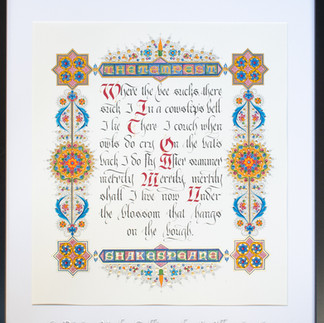 THE TEMPEST
Where the bee sucks there
suck I In a cowslips bell
I lie There I couch when
owls do cry On the bats
back I do fly After summer
merrily Merrily merrily
shall I live now Under
the blossom that hangs
on the bough.
SHAKESPEARE